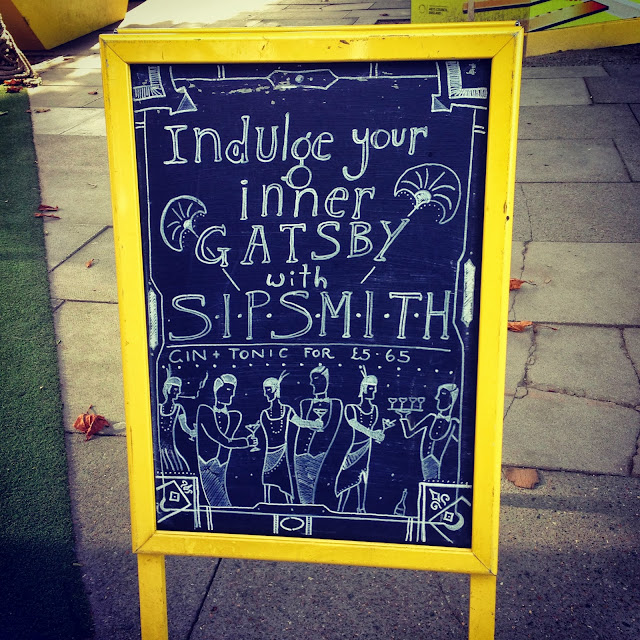 Indulge your
inner
GATSBY
with
S.I.P.S.M.I.T.H
GIN + TONIC FOR £5.65